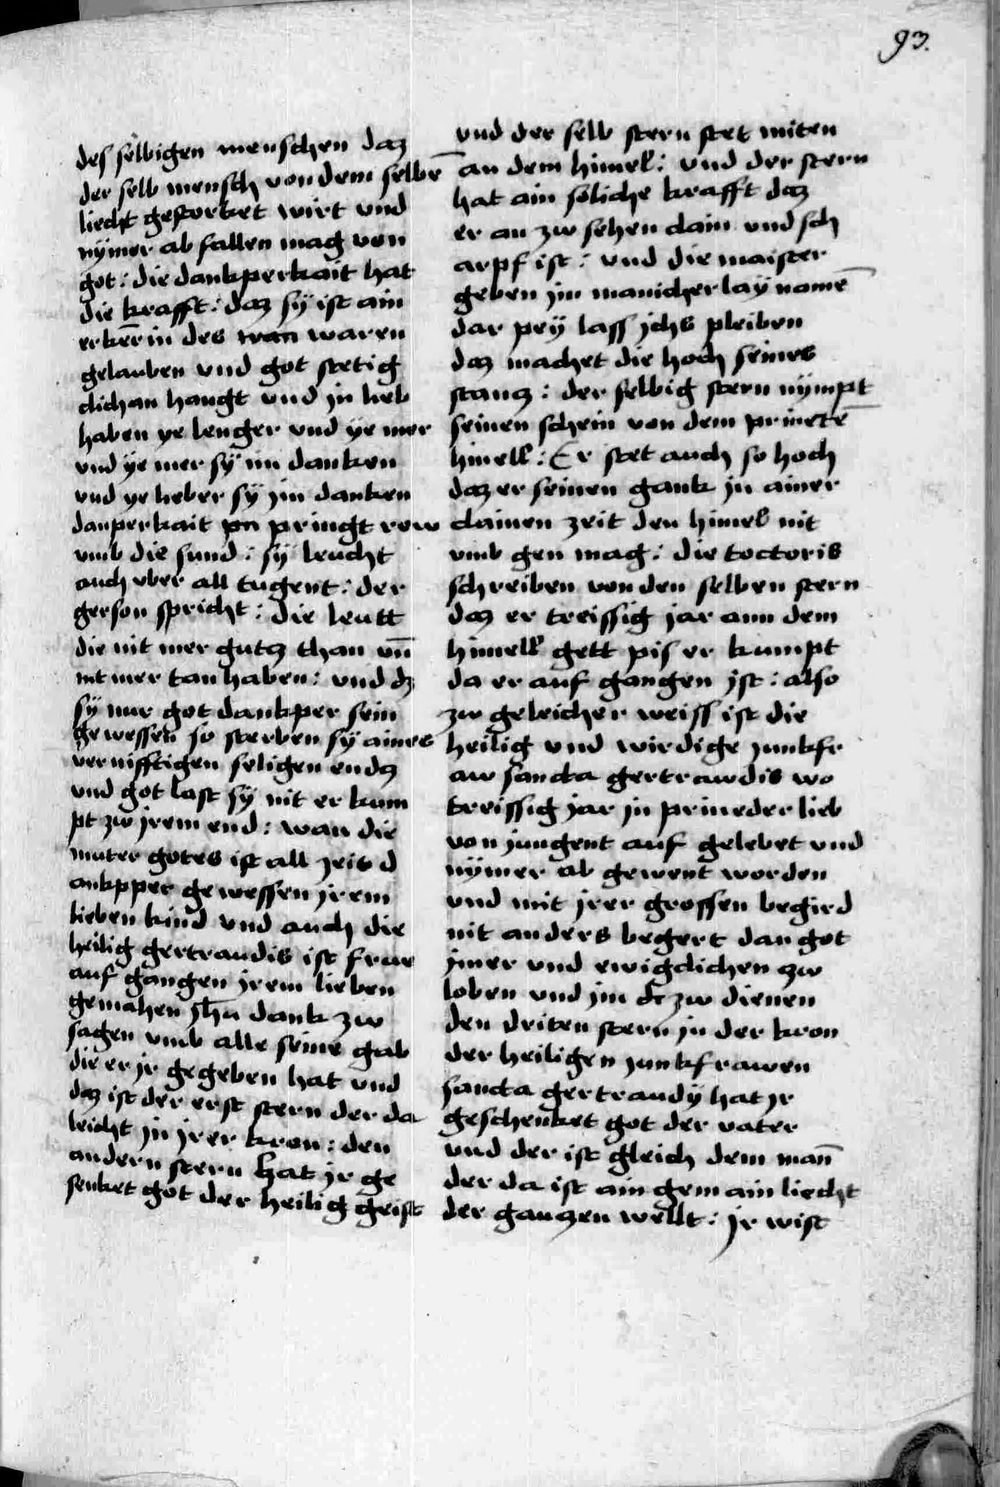 93.
des selbigen menschen daz
der selb mensch von dem selbē
liecht gestorket wirt vnd
nymer ab fallen mag von
got : die dankperkait hat
die krafft : daz sy ist ain
erkēr in des wan waren
gelauben vnd got stetig
clich an hangt vnd in lieb
haben ye lenger vnd ye mer
vnd ye mer sy im danken
vnd ye lieber sy jm danken
danperkait pn pringt rew
vmb die sund : sy leucht
auch vber all tugent : der
gerson spricht : die leutt
die nit mer gutz than vn̄
nit mer tan haben : vnd dz
sy nur got dankper sein
gewessen so sterben sy aines
vernifftigen seligen endz
vnd got last sy nit er kum
pt zw jrem end : wan die
muter gotes ist all zeit d
ankpper gewessen jrem
lieben kind vnd auch die
heilig gertraudis ist frue
auf gangen jrem lieben
gemahen jhū dank zw
sagen vmb alle seine gab
die er jr gegeben hat vnd
daz ist der erst stern der da
leicht in jrer kron : den
andern stern hat jr ge
senket got der heilig geist
vnd der selb stern stet miten
an dem himel : vnd der stern
hat ain soliche krafft daz
er an zw sehen clain vnd sch
arpf ist : vnd die maister
geben jm manicherlay namē
dar pey lass jchs pleiben
daz machet die hoch seines
stanz : der selbig stern nympt
seinen schein von dem prinetē
himell : Er stet auch so hoch
daz er seinen gank in ainer
clainen zeit den himel nit
vmb gen mag : die toctoris
schreiben von den selben stern
daz er treissig jar ann dem
himell gett pis er kumpt
da er auf gangen jst : also
zw geleicher weiss ist die
heilig vnd wirdige junkfr
aw sancta gertrawdis wo
treissig jar in prineder lieb
von jungent auf gelebet vnd
nymer ab gewent worden
vnd mit jrer grossen begird
nit anders begert dan got
jmer vnd ewigclichen zw
loben vnd jm zw dienen
den driten stern in der kron
der heiligen junkfrawen
sancta gertraudy hat jr
geschenket got der vater
vnd der ist gleich dem man̄
der da ist ain gemain liecht
der ganzen wellt : jr wist